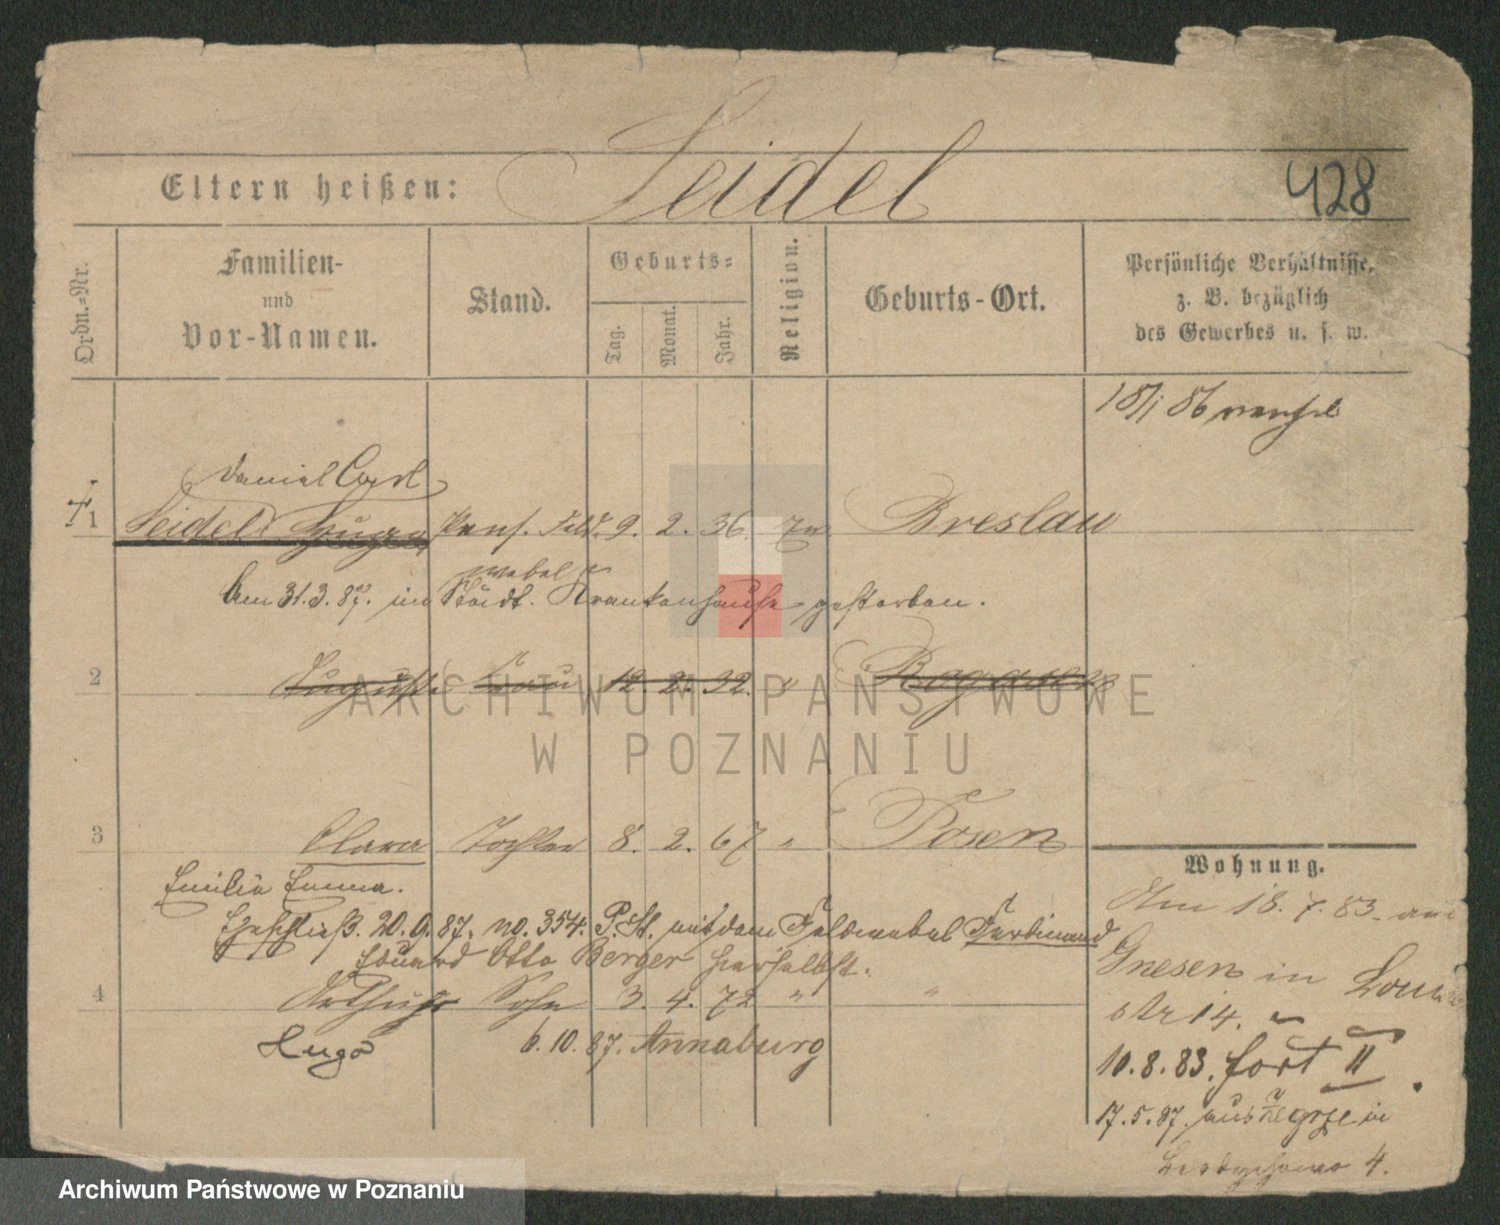 Seidel
Eltern heißen:
428
Ordn.=Nr.
Familien-
und
Vor-Namen.
Stand.
Geburts=
Tag.
Monat.
Jahr.
Religion.
Geburts-Ort.
Persönliche Verhältnisse,
z. B. bezüglich
des Gewerbes u. s. w.
18/1 86
Daniel Carl
† 1 Seidel Hugo Pens. Feld- 9. 2. 36 Breslau
webel
Am 31.3.87. im Städt. Krankenhause gestorben.
2 Auguste Frau 12. 2. 32. "
3 Clara Tochter 8. 2. 67 " Posen
Emilie Emma.
Eheschließ. 20.9.87. no. 354. P. St. mit dem Feldwebel Ferdinand
Eduard Otto Berger hierselbst.
4 Arthur Sohn 3. 4. 72 " "
Hugo
6.10.87. Annaburg
Wohnung.
Am 18.7.83. aus
Gnesen in
str 14.
10.8.83. fort II
17.5.87. aus in
4.
ARCHIWUM PAŃSTWOWE
W POZNANIU
Archiwum Państwowe w Poznaniu